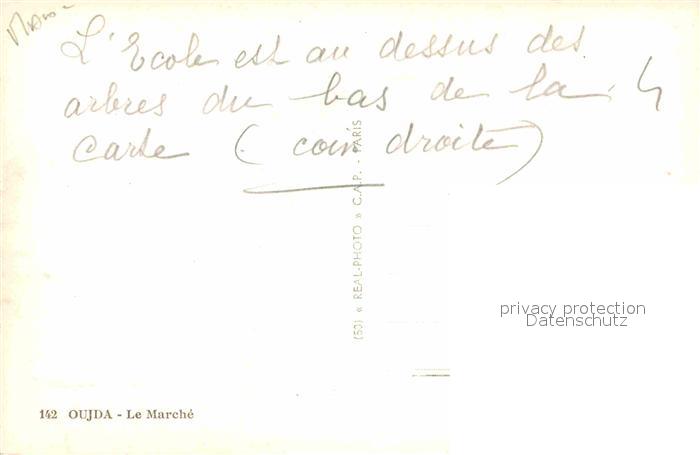 Maroc
L'Ecole est au dessus des
arbres du bas de la
carte (coin droite)
(50) « REAL-PHOTO » C.A.P. - PARIS
privacy protection
Datenschutz
142 OUJDA - Le Marché